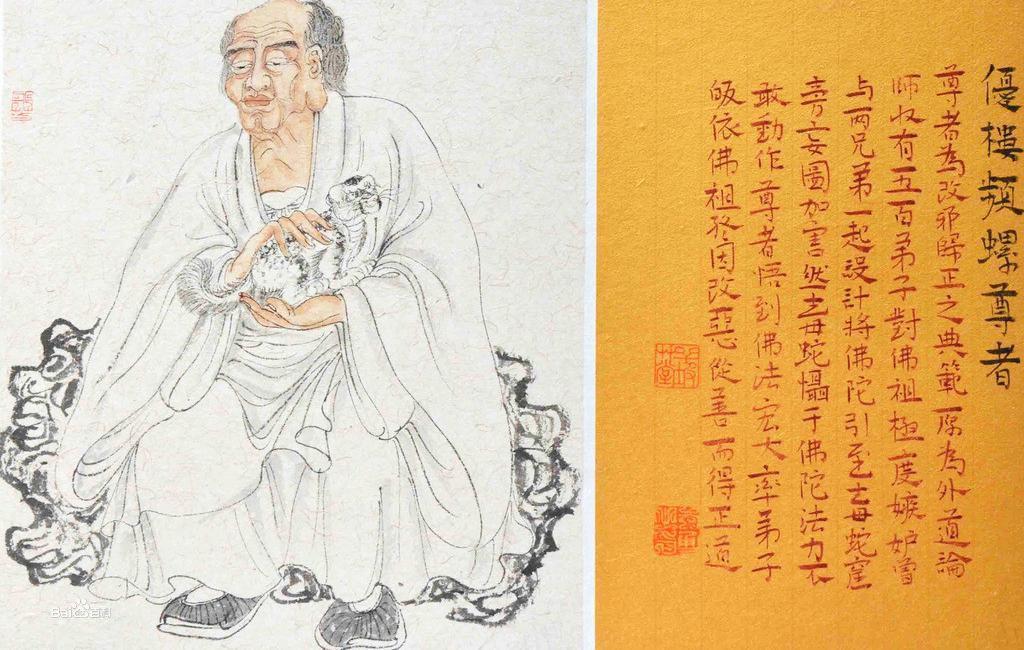 優樓頻螺尊者
尊者為改邪歸正之典範原為外道論
師收有五百弟子對佛祖極度嫉妒曾
与兩兄弟一起設計將佛陀引至毒蛇窟
旁妄圖加害然毒蛇懾于佛陀法力不
敢動作尊者悟到佛法宏大率弟子
皈依佛祖終因改惡從善而得正道
Baidu百科